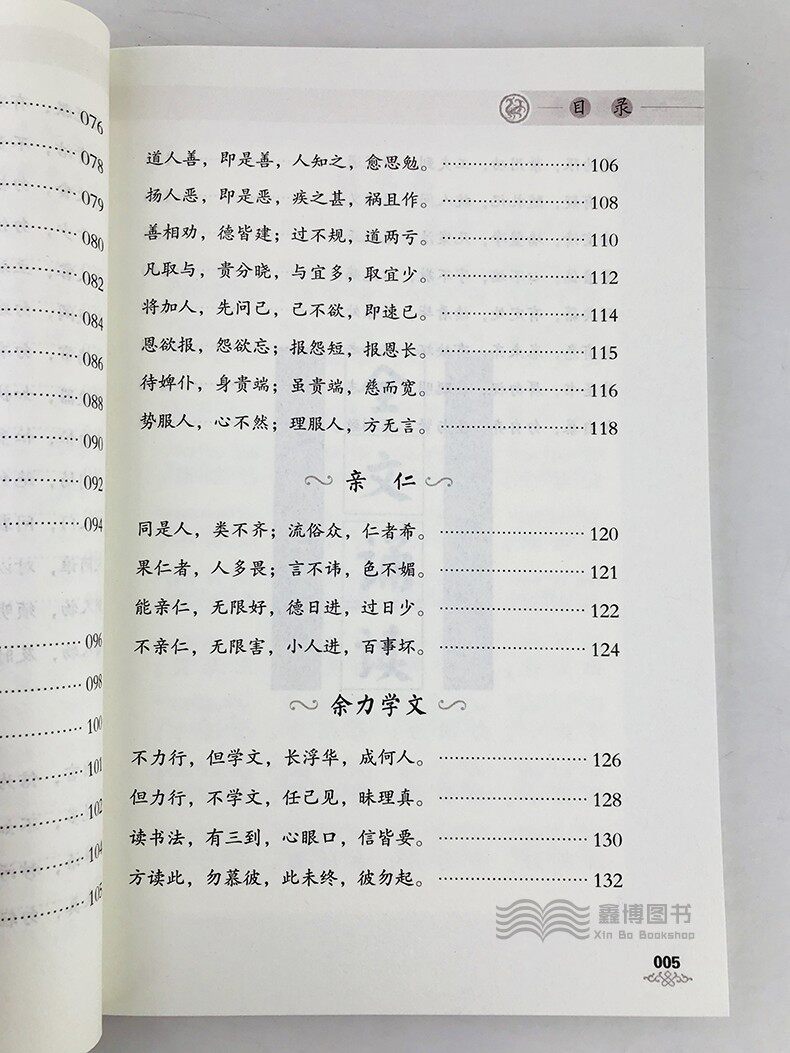 076
078
079
080
082
084
086
088
090
092
094
096
098
100
101
102
104
105
目 录
道人善，即是善，人知之，愈思勉。 106
扬人恶，即是恶，疾之甚，祸且作。 108
善相劝，德皆建；过不规，道两亏。 110
凡取与，贵分晓，与宜多，取宜少。 112
将加人，先问己，己不欲，即速已。 114
恩欲报，怨欲忘；报怨短，报恩长。 115
待婢仆，身贵端；虽贵端，慈而宽。 116
势服人，心不然；理服人，方无言。 118
亲 仁
同是人，类不齐；流俗众，仁者希。 120
果仁者，人多畏；言不讳，色不媚。 121
能亲仁，无限好，德日进，过日少。 122
不亲仁，无限害，小人进，百事坏。 124
余力学文
不力行，但学文，长浮华，成何人。 126
但力行，不学文，任己见，昧理真。 128
读书法，有三到，心眼口，信皆要。 130
方读此，勿慕彼，此未终，彼勿起。 132
鑫博图书
Xin Bo Bookshop
005